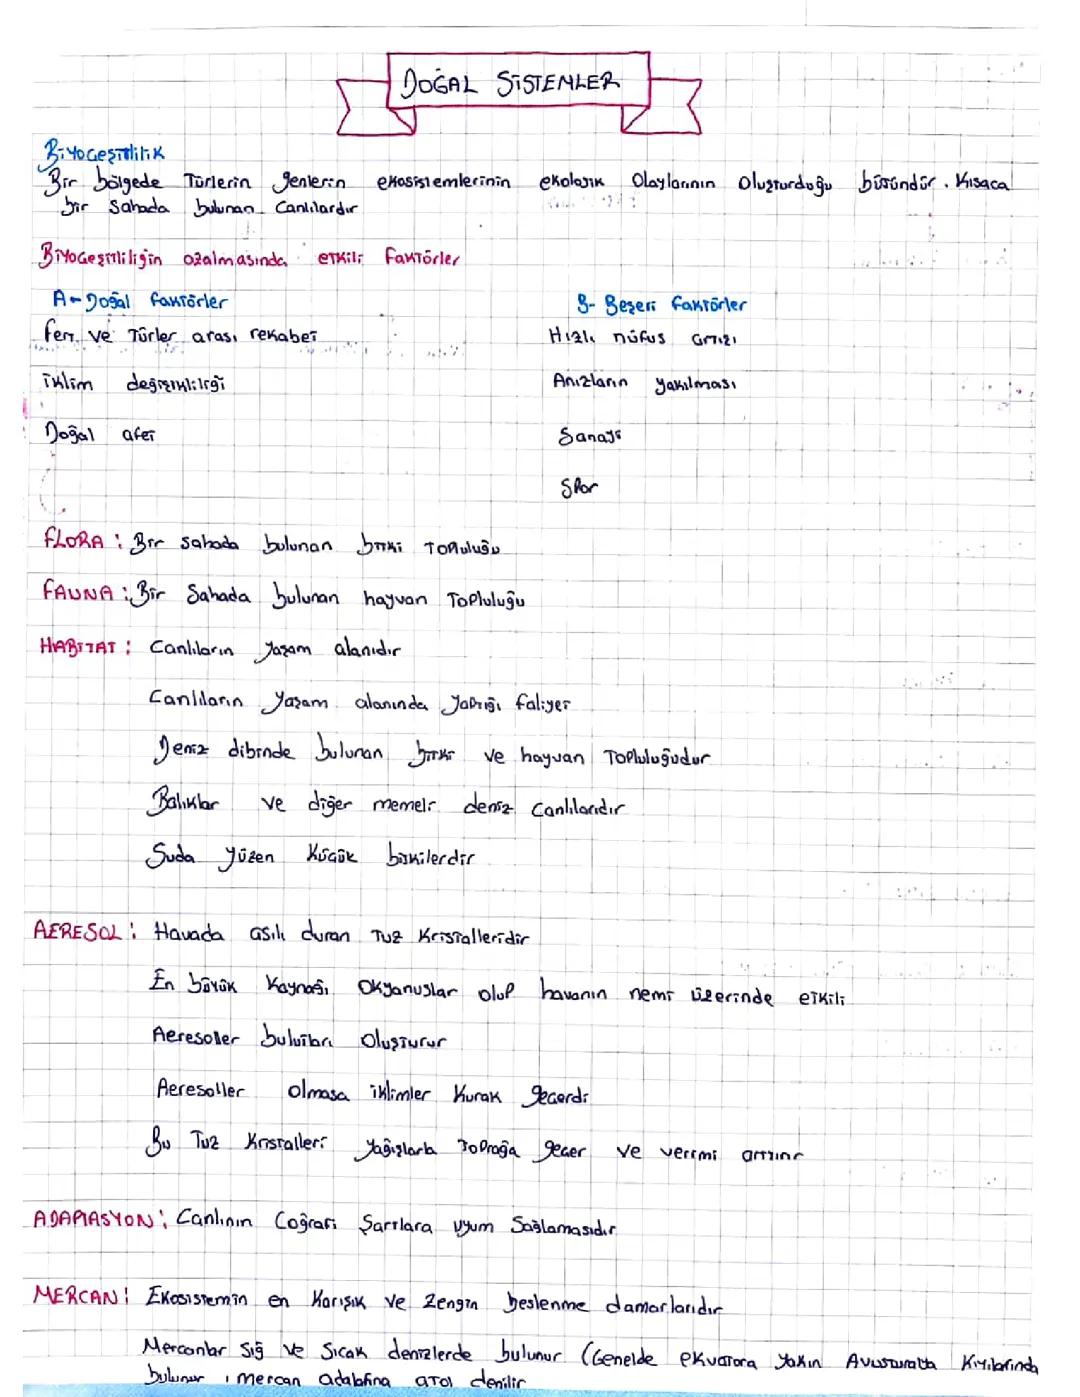 DOĞAL SİSTEMLER
Biyoçeşitlilik
Bir bölgede Türlerin genlerin ekosistemlerinin ekolojik Olaylarının Oluşturduğu bütündür. Kısaca
bir Sahada bulunan Canlılardır
Biyoçeşitliliğin azalmasında etkili faktörler
A- Doğal faktörler
B- Beşeri faktörler
ve Türler arası rekabet
Hızlı nüfus artışı
iklim değişikliliği
Anızların yakılması
Doğal afet
Sanayi
Spor
FLORA : Bir sahada bulunan bitki Topluluğu
FAUNA : Bir Sahada bulunan hayvan Topluluğu
HABİTAT : Canlıların yaşam alanıdır
Canlıların yaşam alanında yaptığı faliyet
Deniz dibinde bulunan bitki ve hayvan Topluluğudur
Balıklar ve diğer memeli deniz Canlılarıdır
Suda yüzen küçük bitkilerdir
AERESOL : Havada asılı duran Tuz Kristalleridir
En büyük Kaynağı Okyanuslar olup havanın nemi üzerinde etkili
Aeresoller bulutları Oluşturur
Aeresoller olmasa iklimler Kurak geçerdi
Bu Tuz Kristalleri yağışlarla Toprağa geçer ve verimi artırır
ADAPTASYON : Canlının Coğrafi Şartlara uyum Sağlamasıdır
MERCAN : Ekosistemin en Karışık ve Zengin beslenme damarlarıdır
Mercanlar Sığ ve Sıcak denizlerde bulunur (Genelde ekvatora Yakın Avusturalya Kıyılarında
bulunur , mercan adalarına atol denilir